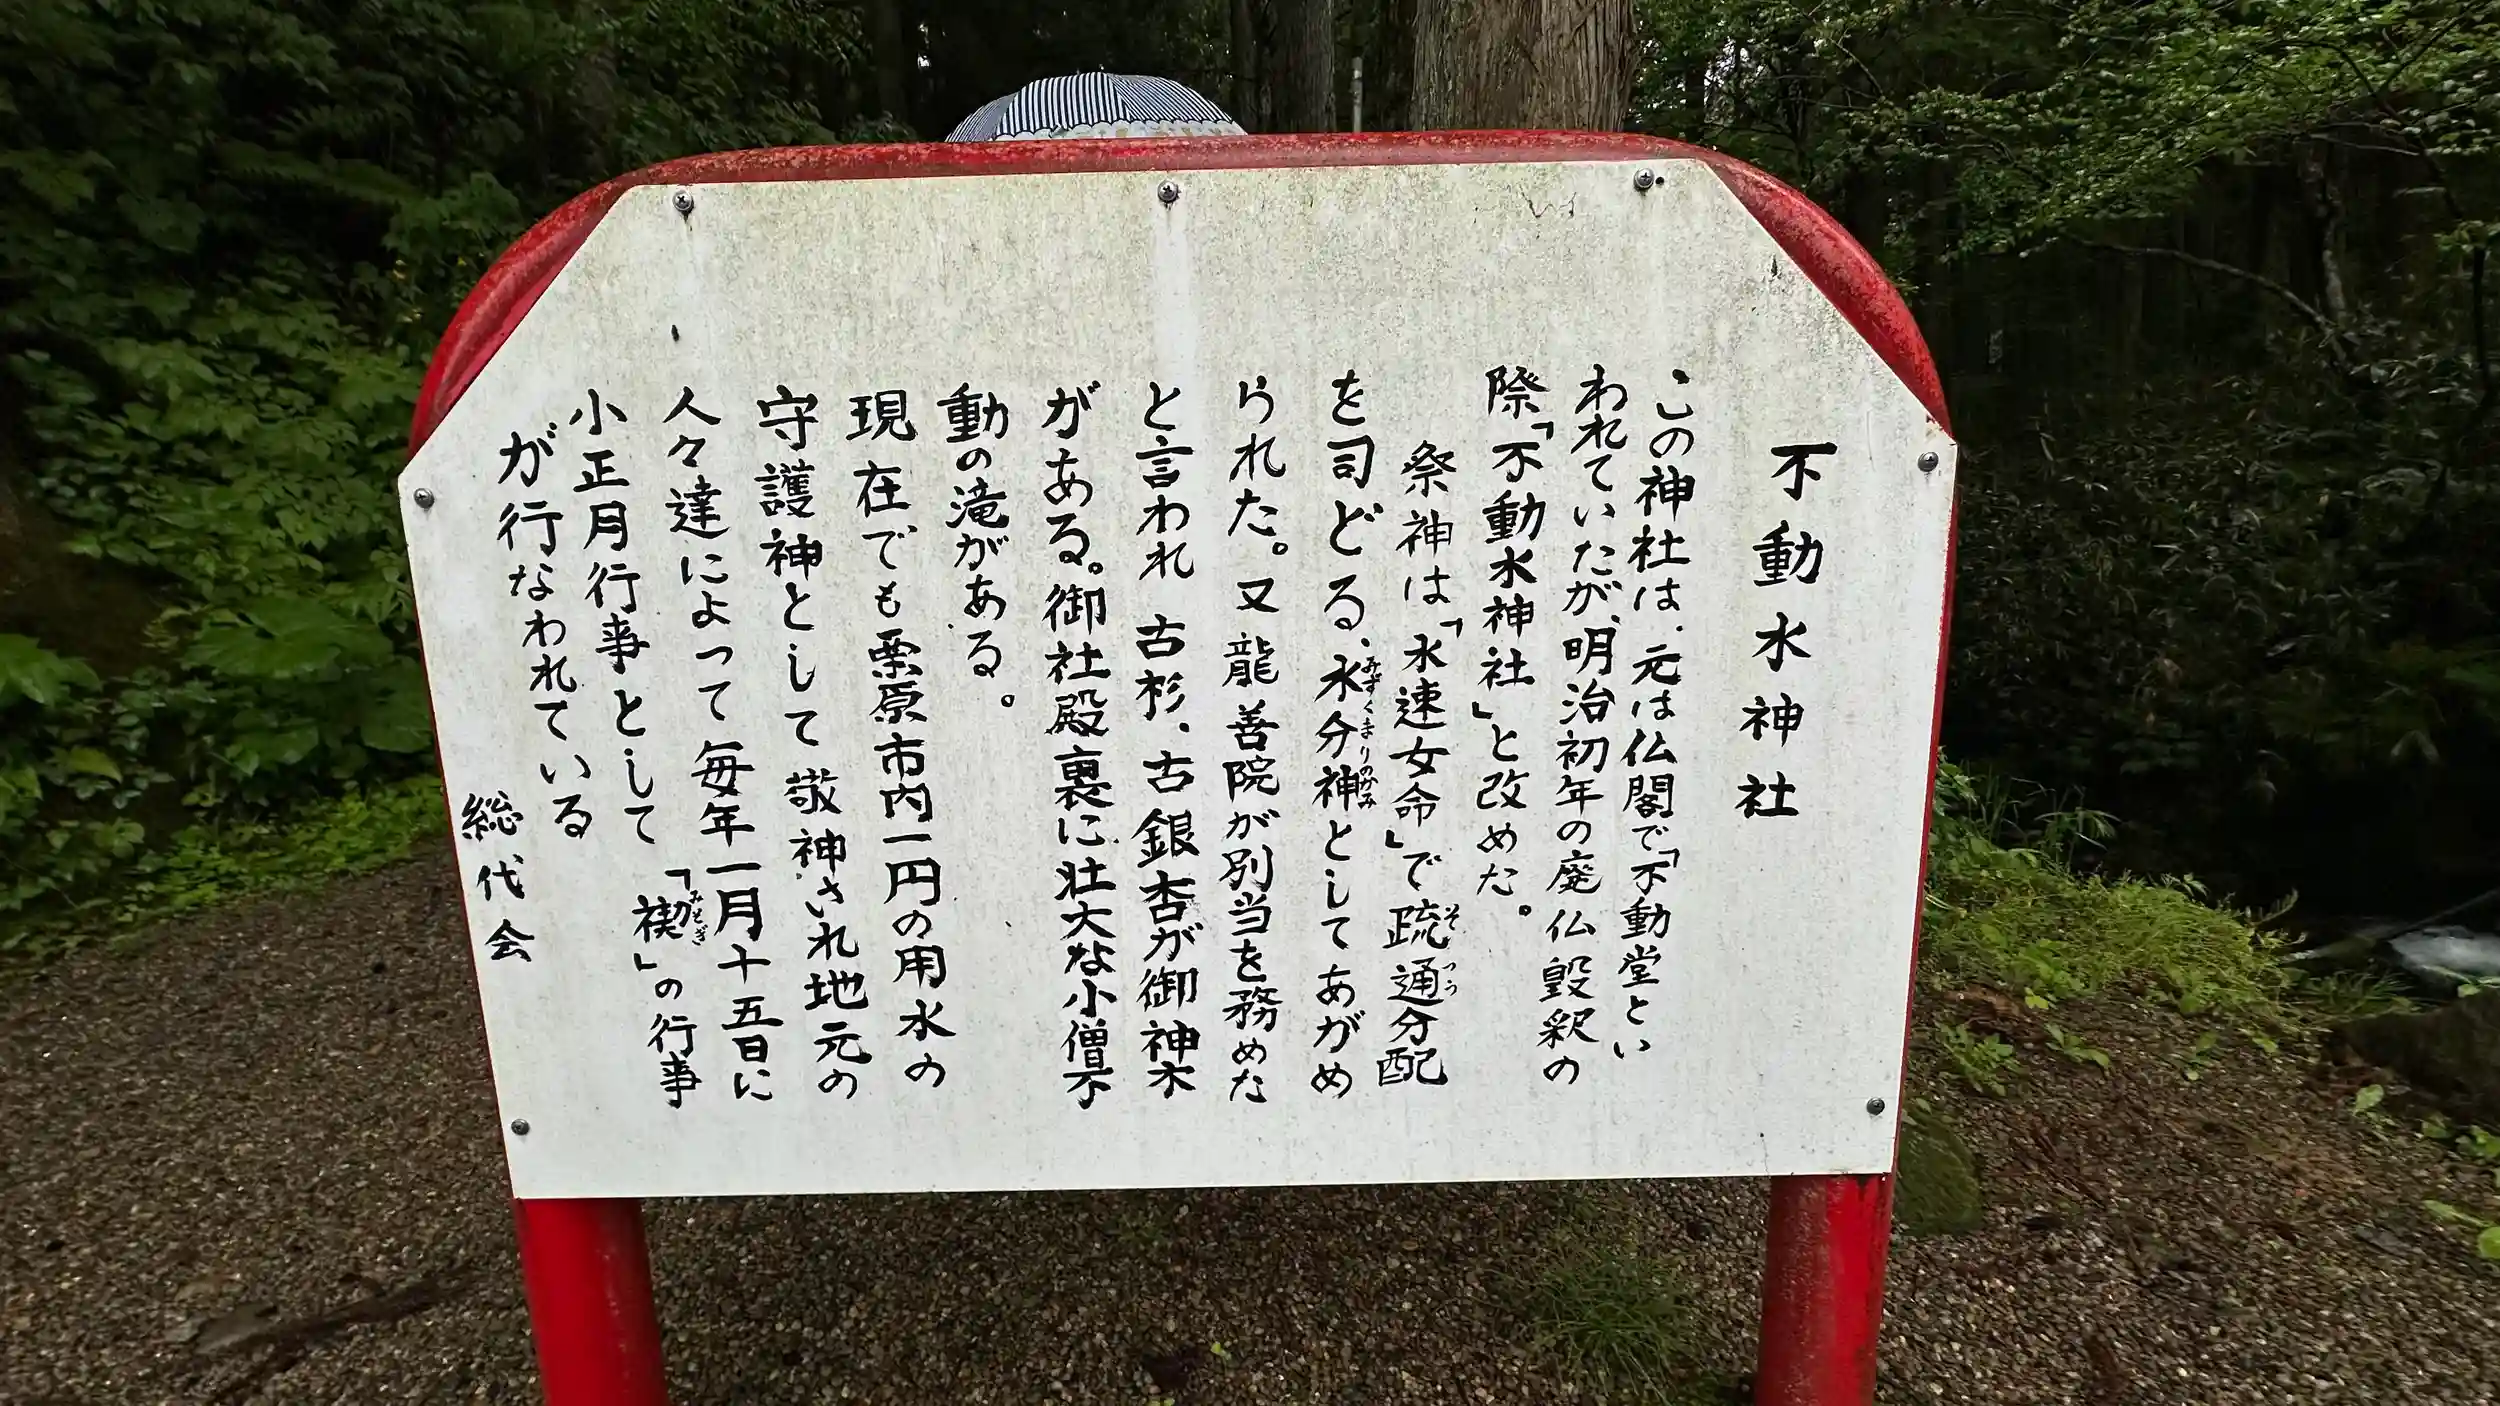 不動水神社
この神社は、元は仏閣で「不動堂とい
われていたが、明治初年の廃仏毀釈の
際「不動水神社」と改めた。
祭神は「水速女命」で疏通分配
を司どる、水分神としてあがめ
られた。又龍善院が別当を務めた
と言われ古杉、古銀杏が御神木
がある。御社殿裏に壮大な小僧不
動の滝がある。
現在でも栗原市内一円の用水の
守護神として敬神され地元の
人々達によって毎年一月十五日に
小正月行事として「禊」の行事
が行なわれている
総代会